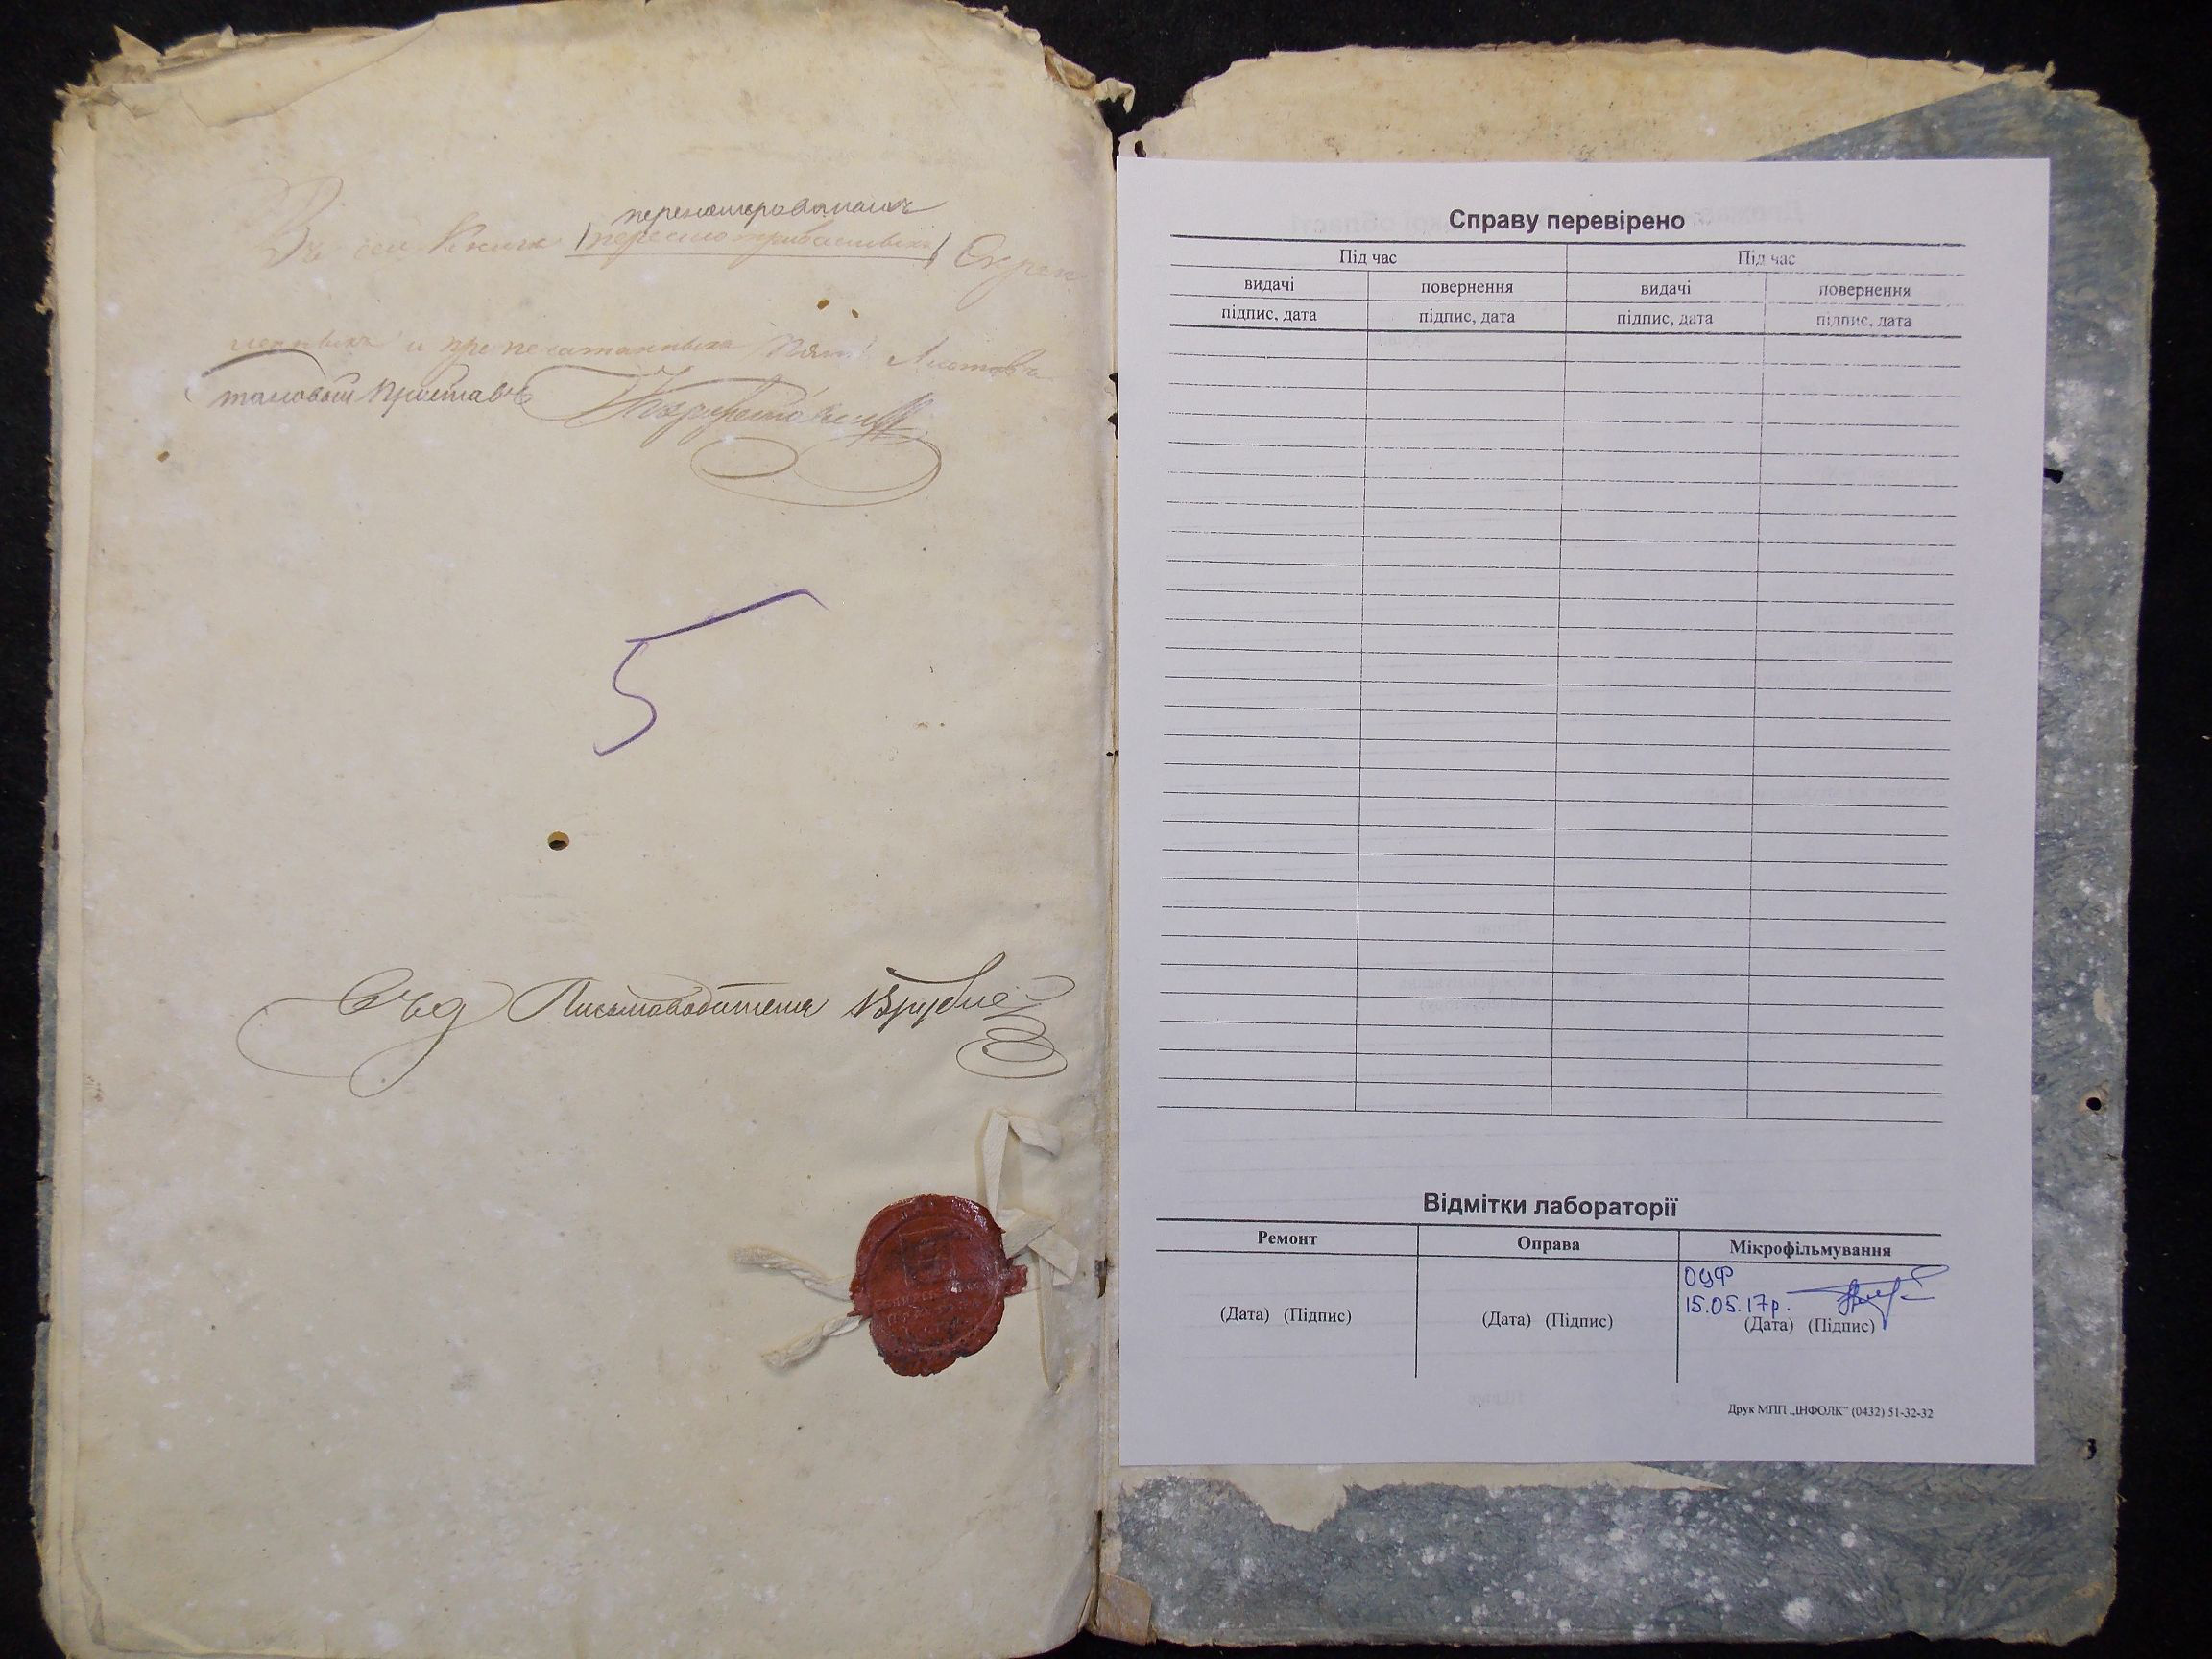 перенумерованныхъ
Въ сей Книгѣ
Скреп
ленныхъ и припечатанныхъ пять Листовъ
Становой Приставъ
5
Письмоводителя Врублев
Справу перевірено
Під час Під час
видачі повернення видачі повернення
підпис, дата підпис, дата підпис, дата підпис, дата
Відмітки лабораторії
Ремонт Оправа Мікрофільмування
ОЦФ
15.05.17р.
(Дата) (Підпис) (Дата) (Підпис) (Дата) (Підпис)
Друк МПП „ІНФОЛК” (0432) 51-32-32